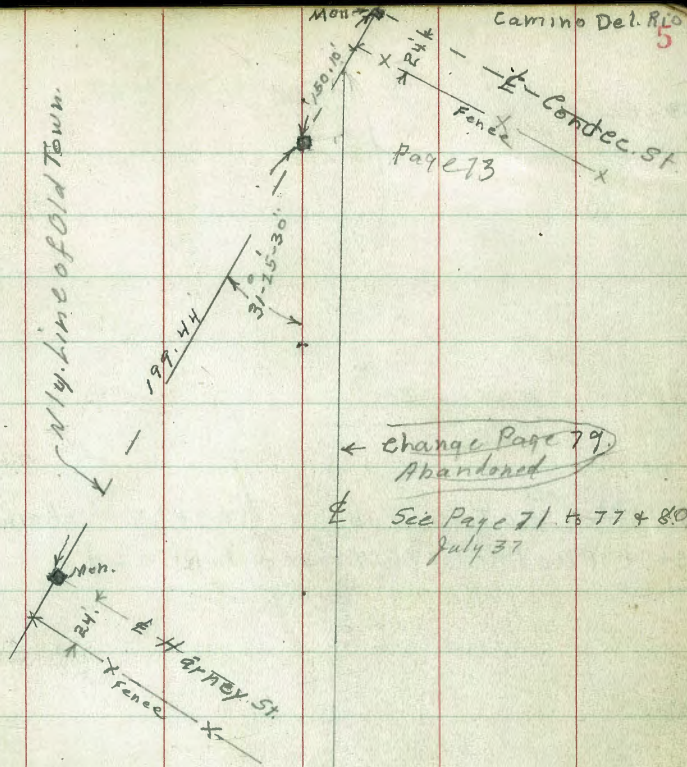 Camino Del. Rio
5
Mon.
24'
150.10'
℄ Condee. St.
Fence
Page 73
Nly. Line of Old Town.
31°-25'-30"
199.44'
← Change Page 79
Abandoned
℄ See Page 71 to 77 & 80
July 37
Mon.
24'
℄ Harney. St.
Fence